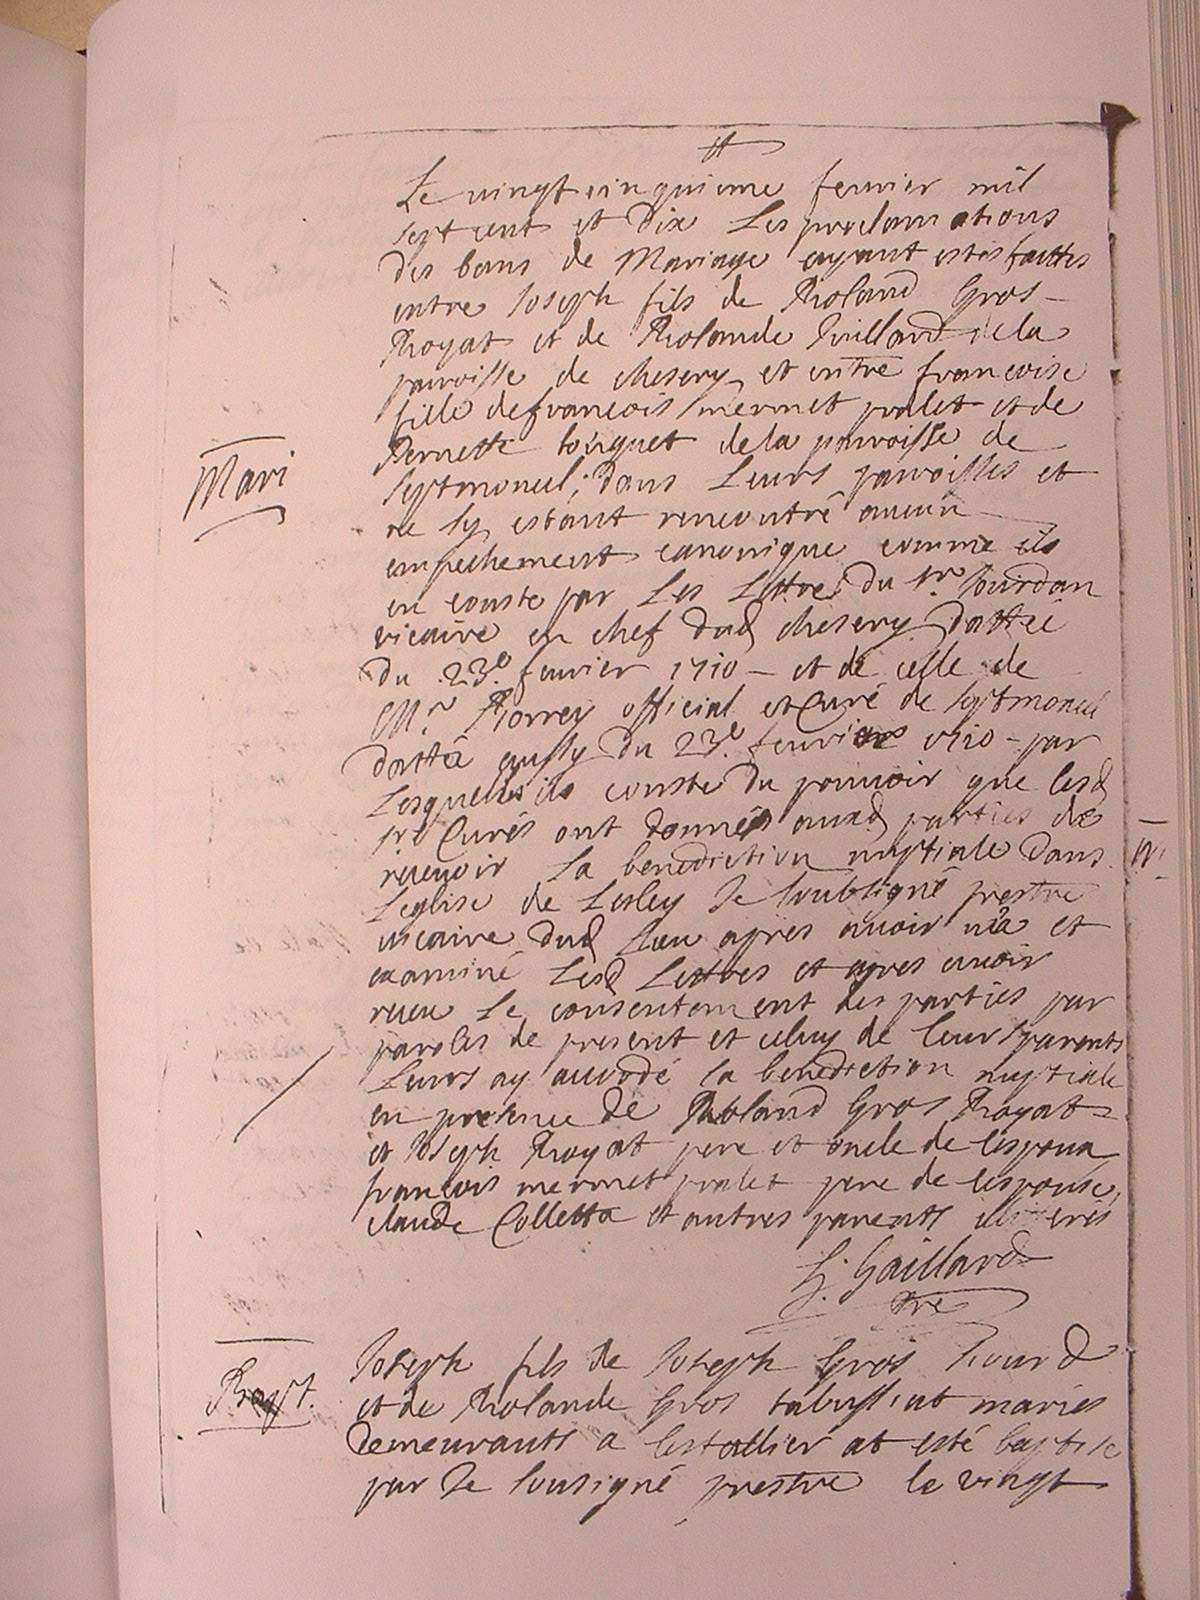 Le vingt cinquieme fevrier mil
sept cent et dix Les proclamations
des bans de Mariage ayant estés faittes
entre Joseph fils de Roland Gros
Royat et de Rolande Juillard de la
paroisse de chesery et entre francoise
fille de francois mermet pralet et de
Pernette de la paroisse de
septmoncel; dans Leurs paroisses et
ne sy estant rencontré aucun
Mari
empechement canonique comme ils
en conste par Les Lettres du sr. Jourdan
vicaire en chef dud chesery dattée
du 23e. fevrier 1710 - et de celle de
Mr official et Curé de septmoncel
dattée aussy du 23e. fevrier 1710 - par
Lesquelles ils conste du pouvoir que lesd
srs Curés ont donnés auxd parties de
recevoir La benediction nuptiale dans
Leglise de Leley Je soubsigné prestre
vicaire dud Lieu apres avoir veu et
examiné Lesd Lettres et apres avoir
receu Le consentement des parties par
paroles de present et celuy de leurs parents
Leurs ay accordé la benediction nuptiale
en presence de Roland Gros Royat
et Joseph Royat pere et oncle de lespoux
francois mermet pralet pere de lespouse,
claude Colletta et autres parents
J. Gaillard
pre
Bapt.
Joseph fils de Joseph Gros
et de Rolande Gros mariés
demeurants a lestallier at esté baptise
par Je sousigné prestre le vingt